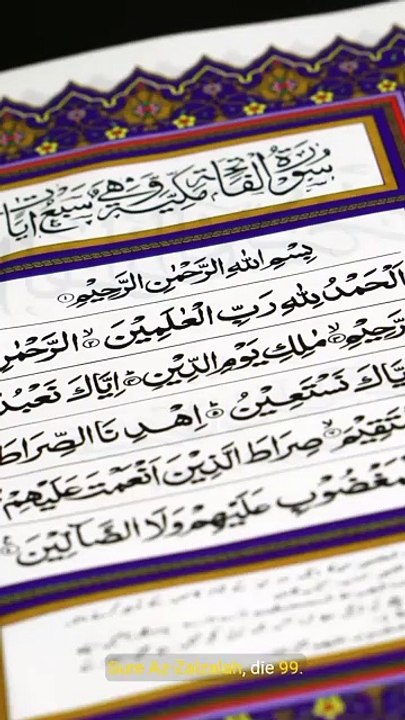 سُوْرَةُ الْفَاتِحَةِ مَكِّيَّةٌ وَّهِيَ سَبْعُ اٰيَاتٍ
بِسْمِ اللهِ الرَّحْمٰنِ الرَّحِيْمِ ۝١
اَلْحَمْدُ لِلّٰهِ رَبِّ الْعٰلَمِيْنَ ۝٢ الرَّحْمٰنِ
الرَّحِيْمِ ۝٣ مٰلِكِ يَوْمِ الدِّيْنِ ۝٤ اِيَّاكَ نَعْبُدُ
اِيَّاكَ نَسْتَعِيْنُ ۝٥ اِهْدِ نَا الصِّرَاطَ
الْمُسْتَقِيْمَ ۝٦ صِرَاطَ الَّذِيْنَ اَنْعَمْتَ عَلَيْهِمْ
الْمَغْضُوْبِ عَلَيْهِمْ وَلَا الضَّآلِّيْنَ ۝٧
Sure Az-Zalzalah, die 99.